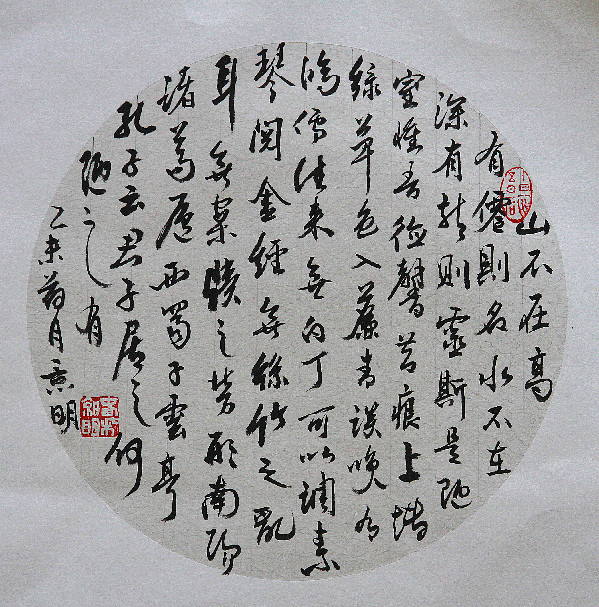 山不在高
有僊則名水不在
深有龍則靈斯是陋
室惟吾德馨苔痕上堦
綠草色入簾青談咲有
鴻儒往來無白丁可以調素
琴閱金經無絲竹之亂
耳無案牘之勞形南陽
諸葛廬西蜀子雲亭
孔子云君子居之何
陋之有
乙未月景明